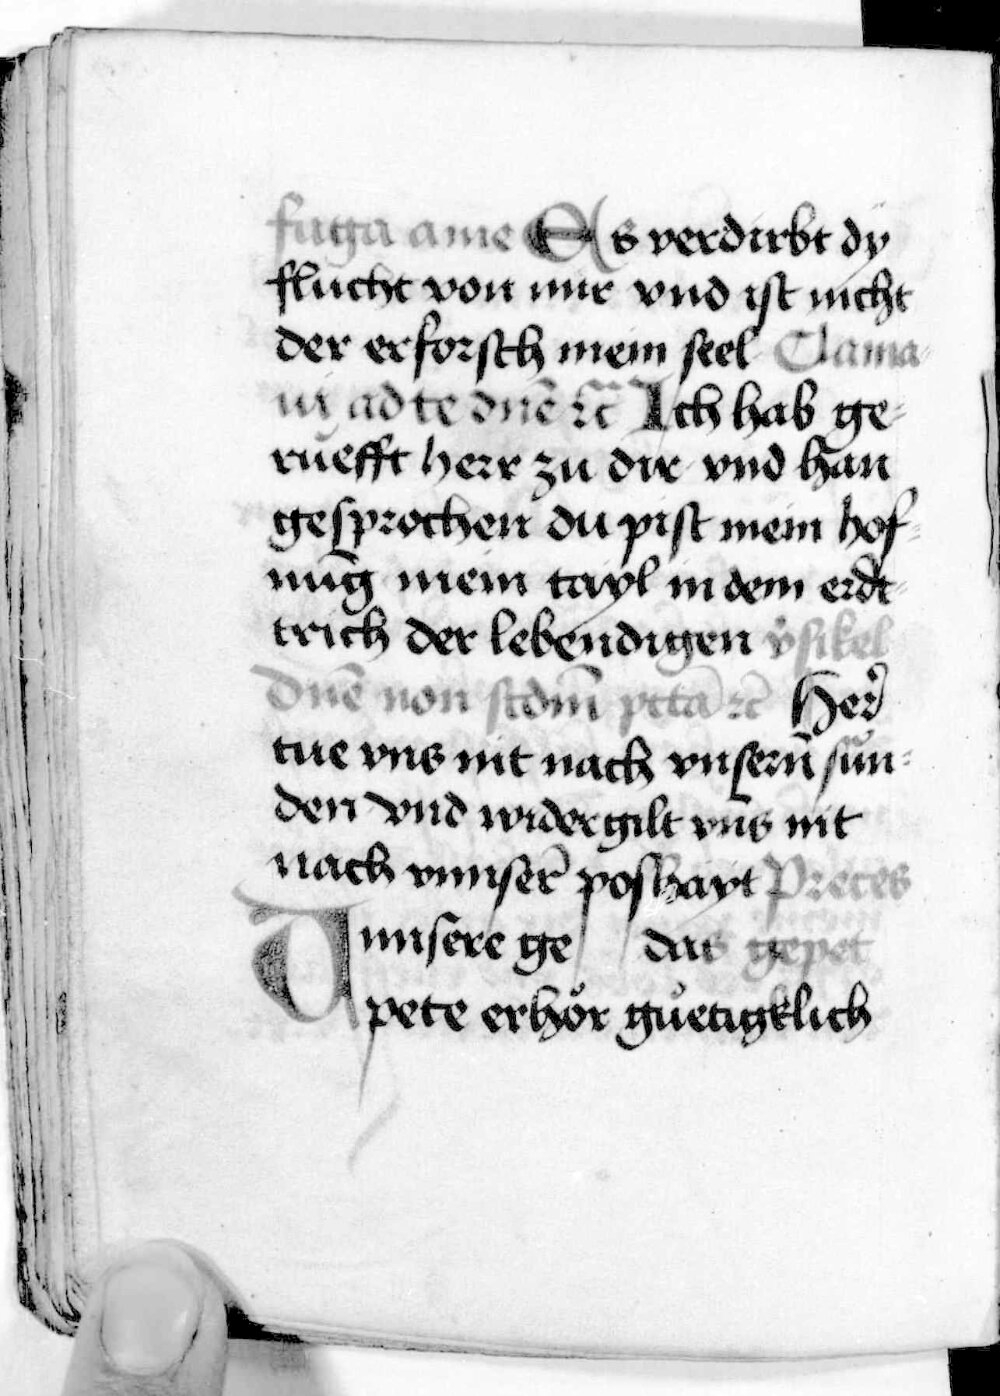 fuga a me Es verdirbt dÿ
flucht von mir vnd ist nicht
der erforsch mein seel Clama-
ui ad te dn̄e ⁊c̄ Ich hab ge-
rüefft herr zu dir vnd han
gesprochen du pist mein hof-
nūg mein tayl in dem erdt-
trich der lebendigen v̊sikel
Dn̄e non scdm̄ pctā ⁊c̄ Her᷑
tue vns nit nach vnsern̄ sün-
den vnd widergilt vns nit
nach vnnser᷑ poshayt Preces
Vnnsere ge das gepet
pete erhör güetigklich